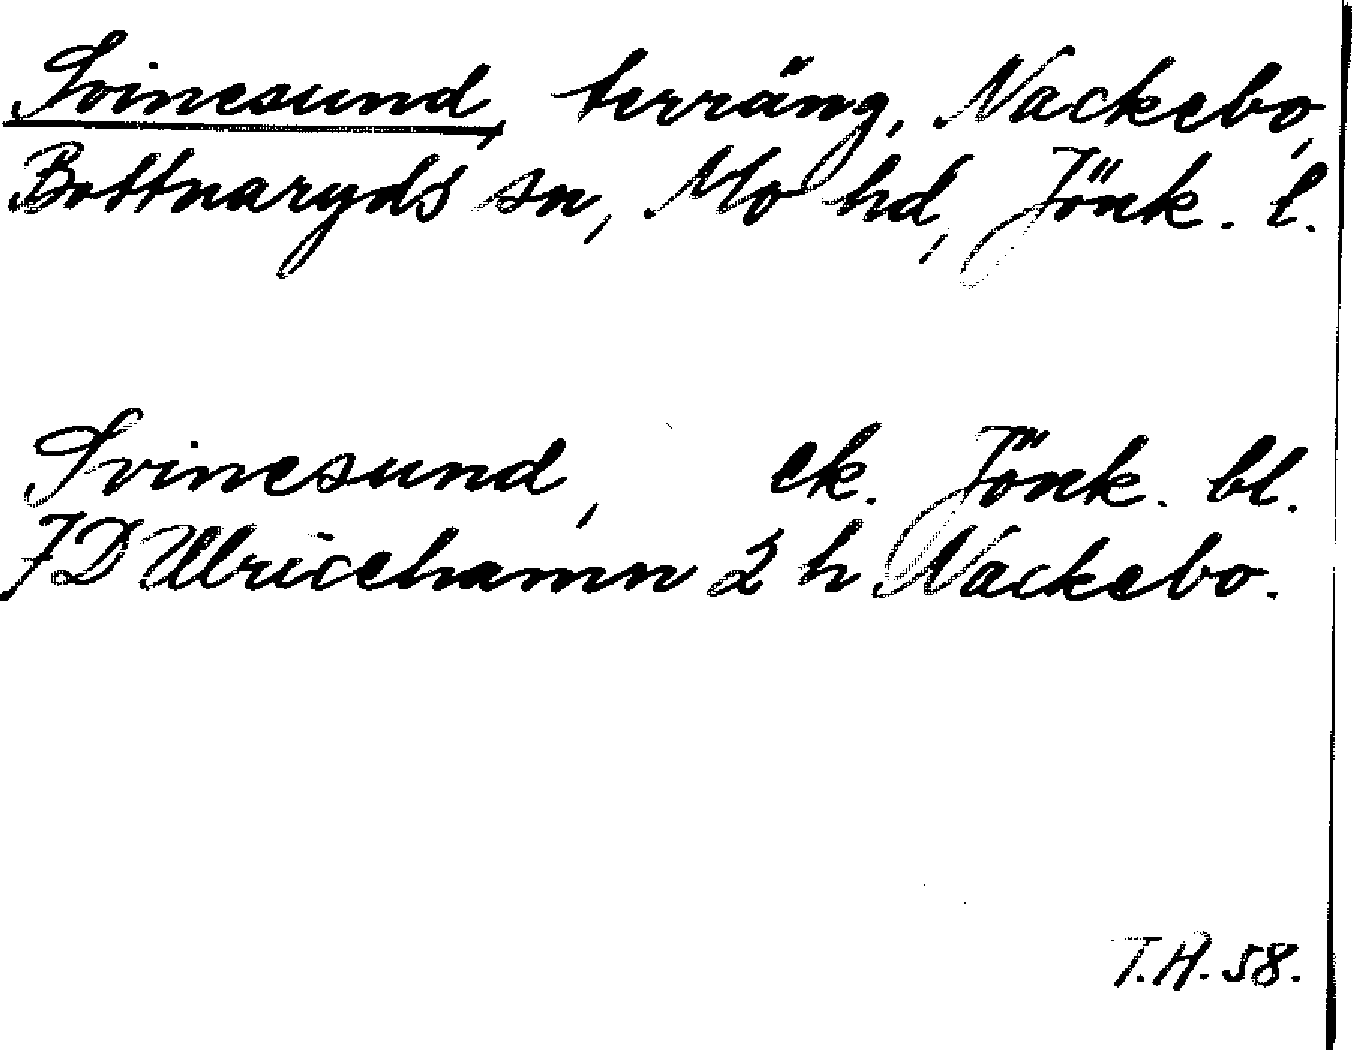 Svinesund, terräng, Nackebo,
Bottnaryds sn, Mo hd, Jönk. l.
Svinesund, ek. Jönk. bl.
7D Ulricehamn 2 h Nackebo.
T.H. 58.